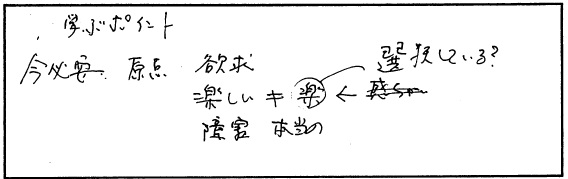 . 学ぶポイント
今必要 原点 欲求 選択している?
楽しい ≠ 楽 ←
障害 本当の